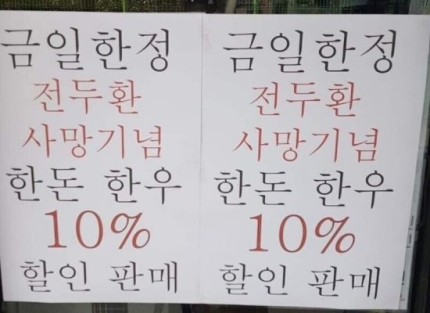 금일한정
전두환
사망기념
한돈 한우
10%
할인 판매
금일한정
전두환
사망기념
한돈 한우
10%
할인 판매